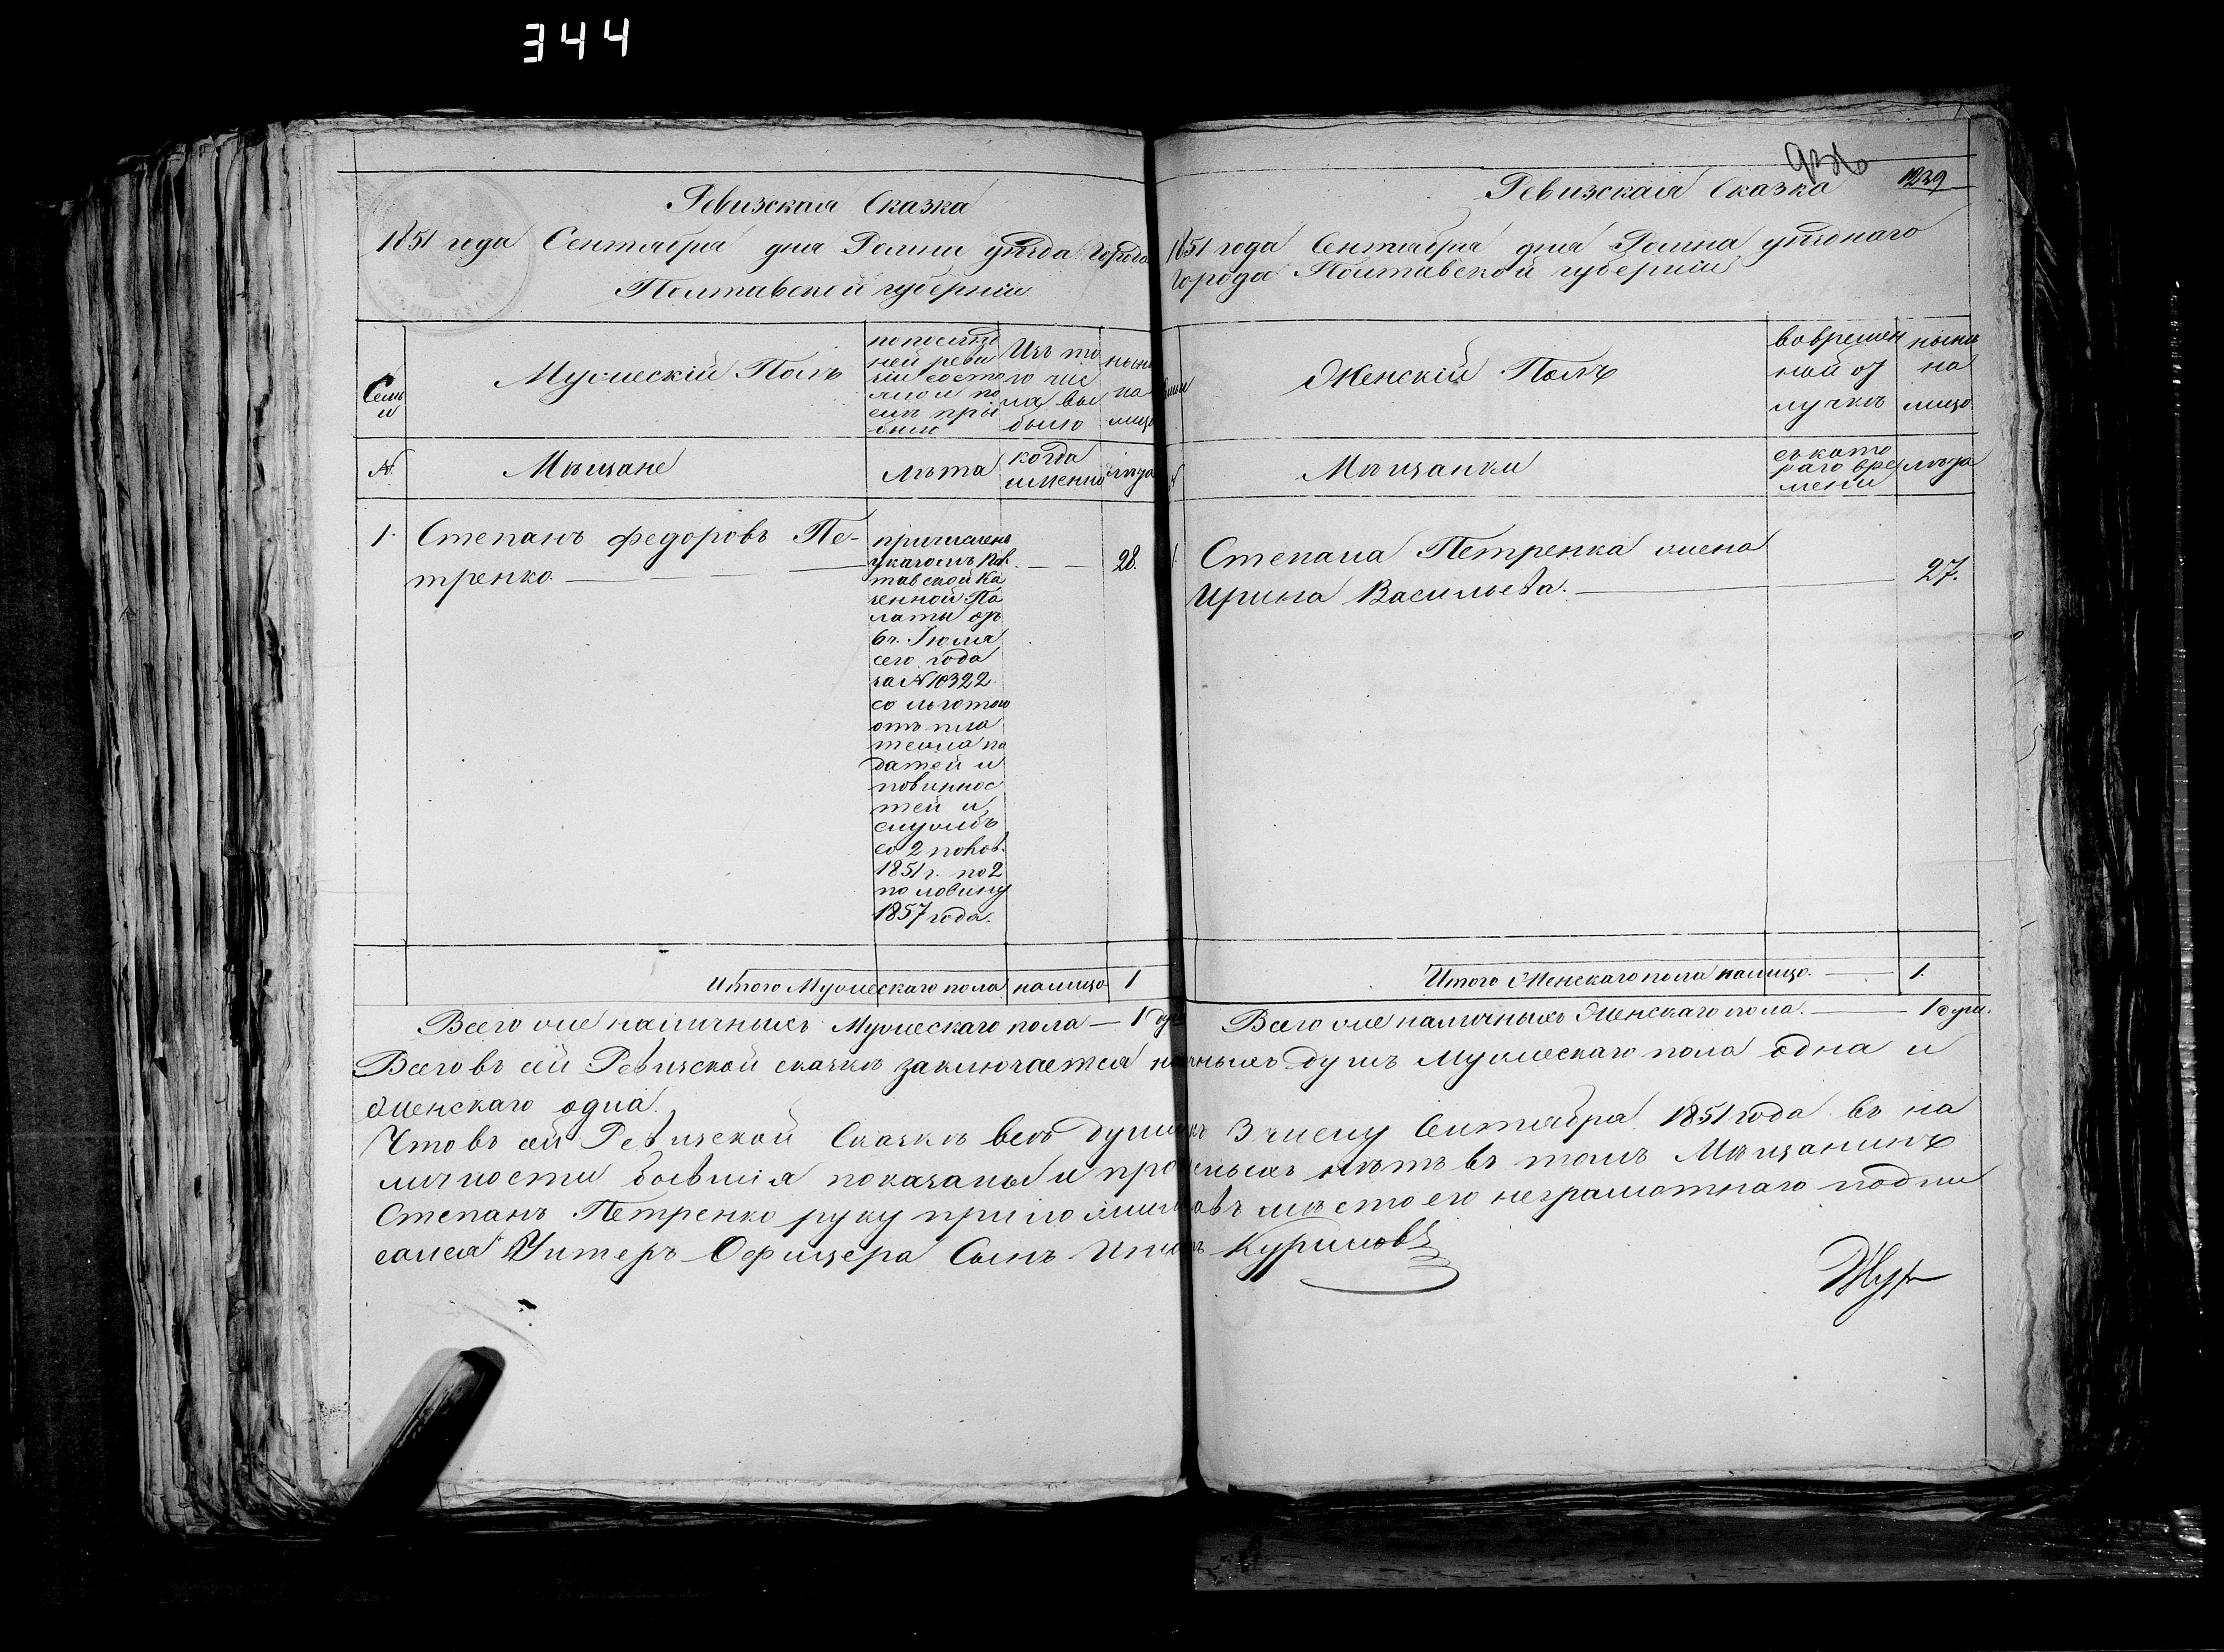 344
Ревизская Сказка
1851 года Сентября дня Ромни уѣзда Города
Полтавской губерніи
Семьи
Мужескій Полъ
по послѣд
ней реви
зіи состо
яло и по
слѣ при
было
Изъ то
го чис
ла вы
было
нынѣ
на
лицо
№
Мѣщане
лѣта
когда
именно
лѣта
1.
Степанъ Федоровъ Пе-
тренко.
причисленъ
указомъ Пол
тавской Ка
зенной Па
латы отъ
6г. Іюля
сего года
за № 10322
со льготою
отъ пла
тежа по
датей и
повиннос
тей и
службъ
со 2 полов.
1851 г. по 2
половину
1857 года.
28.
Итого Мужескаго пола налицо 1
Всего же наличныхъ Мужескаго пола — 1 душ
239
Ревизская Сказка
1851 года Сентября дня Ромна уѣзднаго
города Полтавской губерніи
Женскій Полъ
во времен
ной от
лучкѣ
нынѣ
на
лицо
Мѣщанки
съ кото
раго вре
мени
лѣта
1.
Степана Петренка жена
Ирина Васильева.
27.
Итого Женскаго пола налицо. — 1.
Всего же наличныхъ Женскаго пола. — 1 душ.
Всего въ сей Ревизской сказкѣ заключается наличныхъ душъ Мужескаго пола одна и
женскаго одна.
Что въ сей Ревизской Сказкѣ всѣ души къ 3 числу Сентября 1851 года въ на
личности бывшія показаны и прописныхъ нѣтъ въ томъ Мѣщанинъ
Степанъ Петренко руку приложилъ а въ мѣсто его неграмотнаго подпи
сался Унтеръ Офицера Сынъ Куриловъ